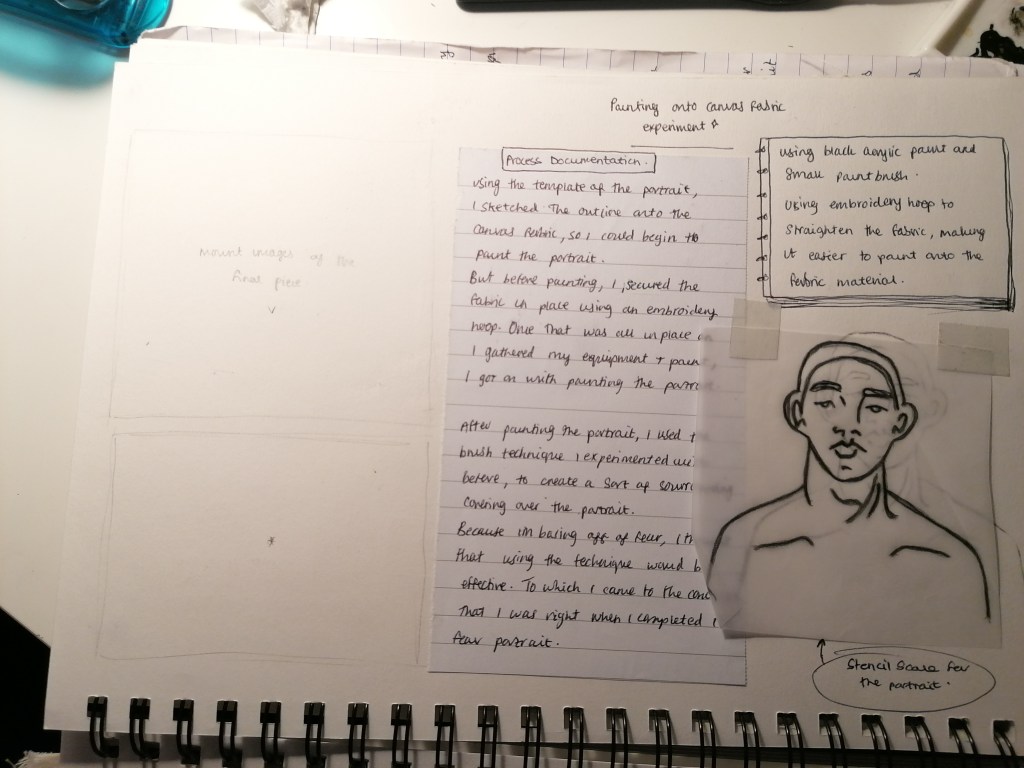 Painting onto canvas fabric
experiment
Process Documentation.
using the template of the portrait,
I sketched the outline onto the
canvas fabric, so I could begin to
paint the portrait.
But before painting, I secured the
fabric in place using an embroidery
hoop. Once that was all in place
I gathered my equipment +
I got on with painting the
After painting the portrait, I used
brush technique I experimented
before, to create a sort of
covering over the portrait.
Because im basing off of fear, I
that using the technique would
effective. To which I came to the
that I was right when I completed
fear portrait.
using black acrylic paint and
small paintbrush.
Using embroidery hoop to
straighten the fabric, making
it easier to paint onto the
fabric material.
Stencil
the portrait.
mount images of the
final piece